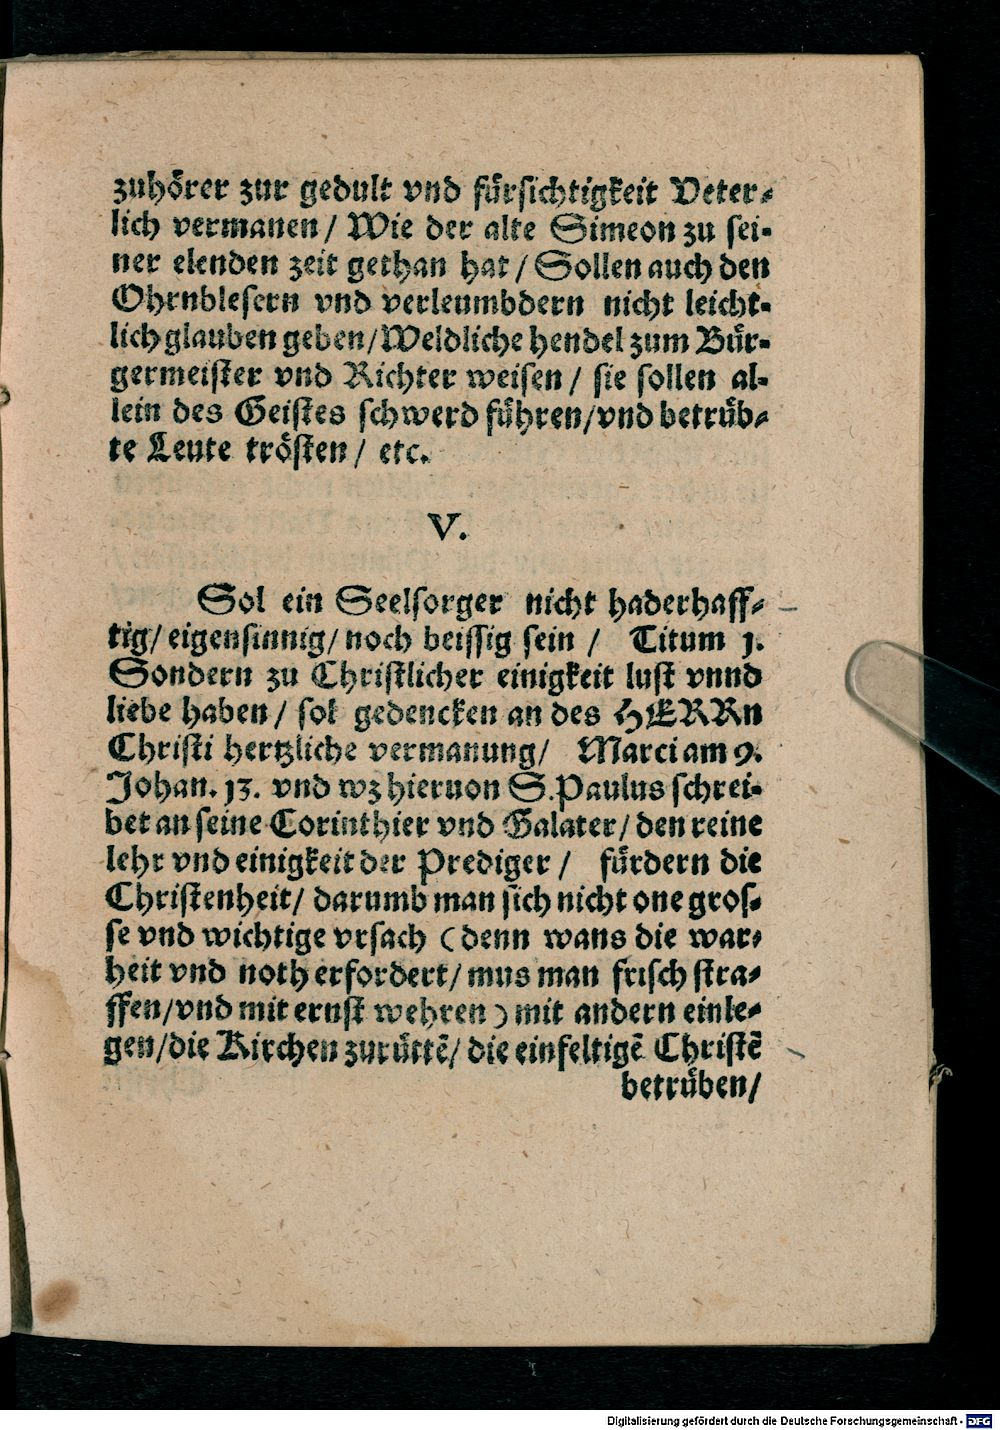 zuhörer zur gedult vnd fürsichtigkeit Veter-
lich vermanen / Wie der alte Simeon zu sei-
ner elenden zeit gethan hat / Sollen auch den
Ohrnblesern vnd verleumbdern nicht leicht-
lich glauben geben / Weldliche hendel zum Bür-
germeister vnd Richter weisen / sie sollen al-
lein des Geistes schwerd führen / vnd betrüb-
te Leute trösten / etc.
V.
Sol ein Seelsorger nicht haderhaff-
tig / eigensinnig / noch beissig sein / Titum 1.
Sondern zu Christlicher einigkeit lust vnnd
liebe haben / sol gedencken an des HERRn
Christi hertzliche vermanung / Marci am 9.
Johan. 13. vnd wz hieruon S. Paulus schrei-
bet an seine Corinthier vnd Galater / den reine
lehr vnd einigkeit der Prediger / fürdern die
Christenheit / darumb man sich nicht one gros-
se vnd wichtige vrsach (denn wans die war-
heit vnd noth erfordert / mus man frisch stra-
ffen / vnd mit ernst wehren) mit andern einle-
gen / die Kirchen zurüttē / die einfeltigē Christē
betrüben /
Digitalisierung gefördert durch die Deutsche Forschungsgemeinschaft - DFG